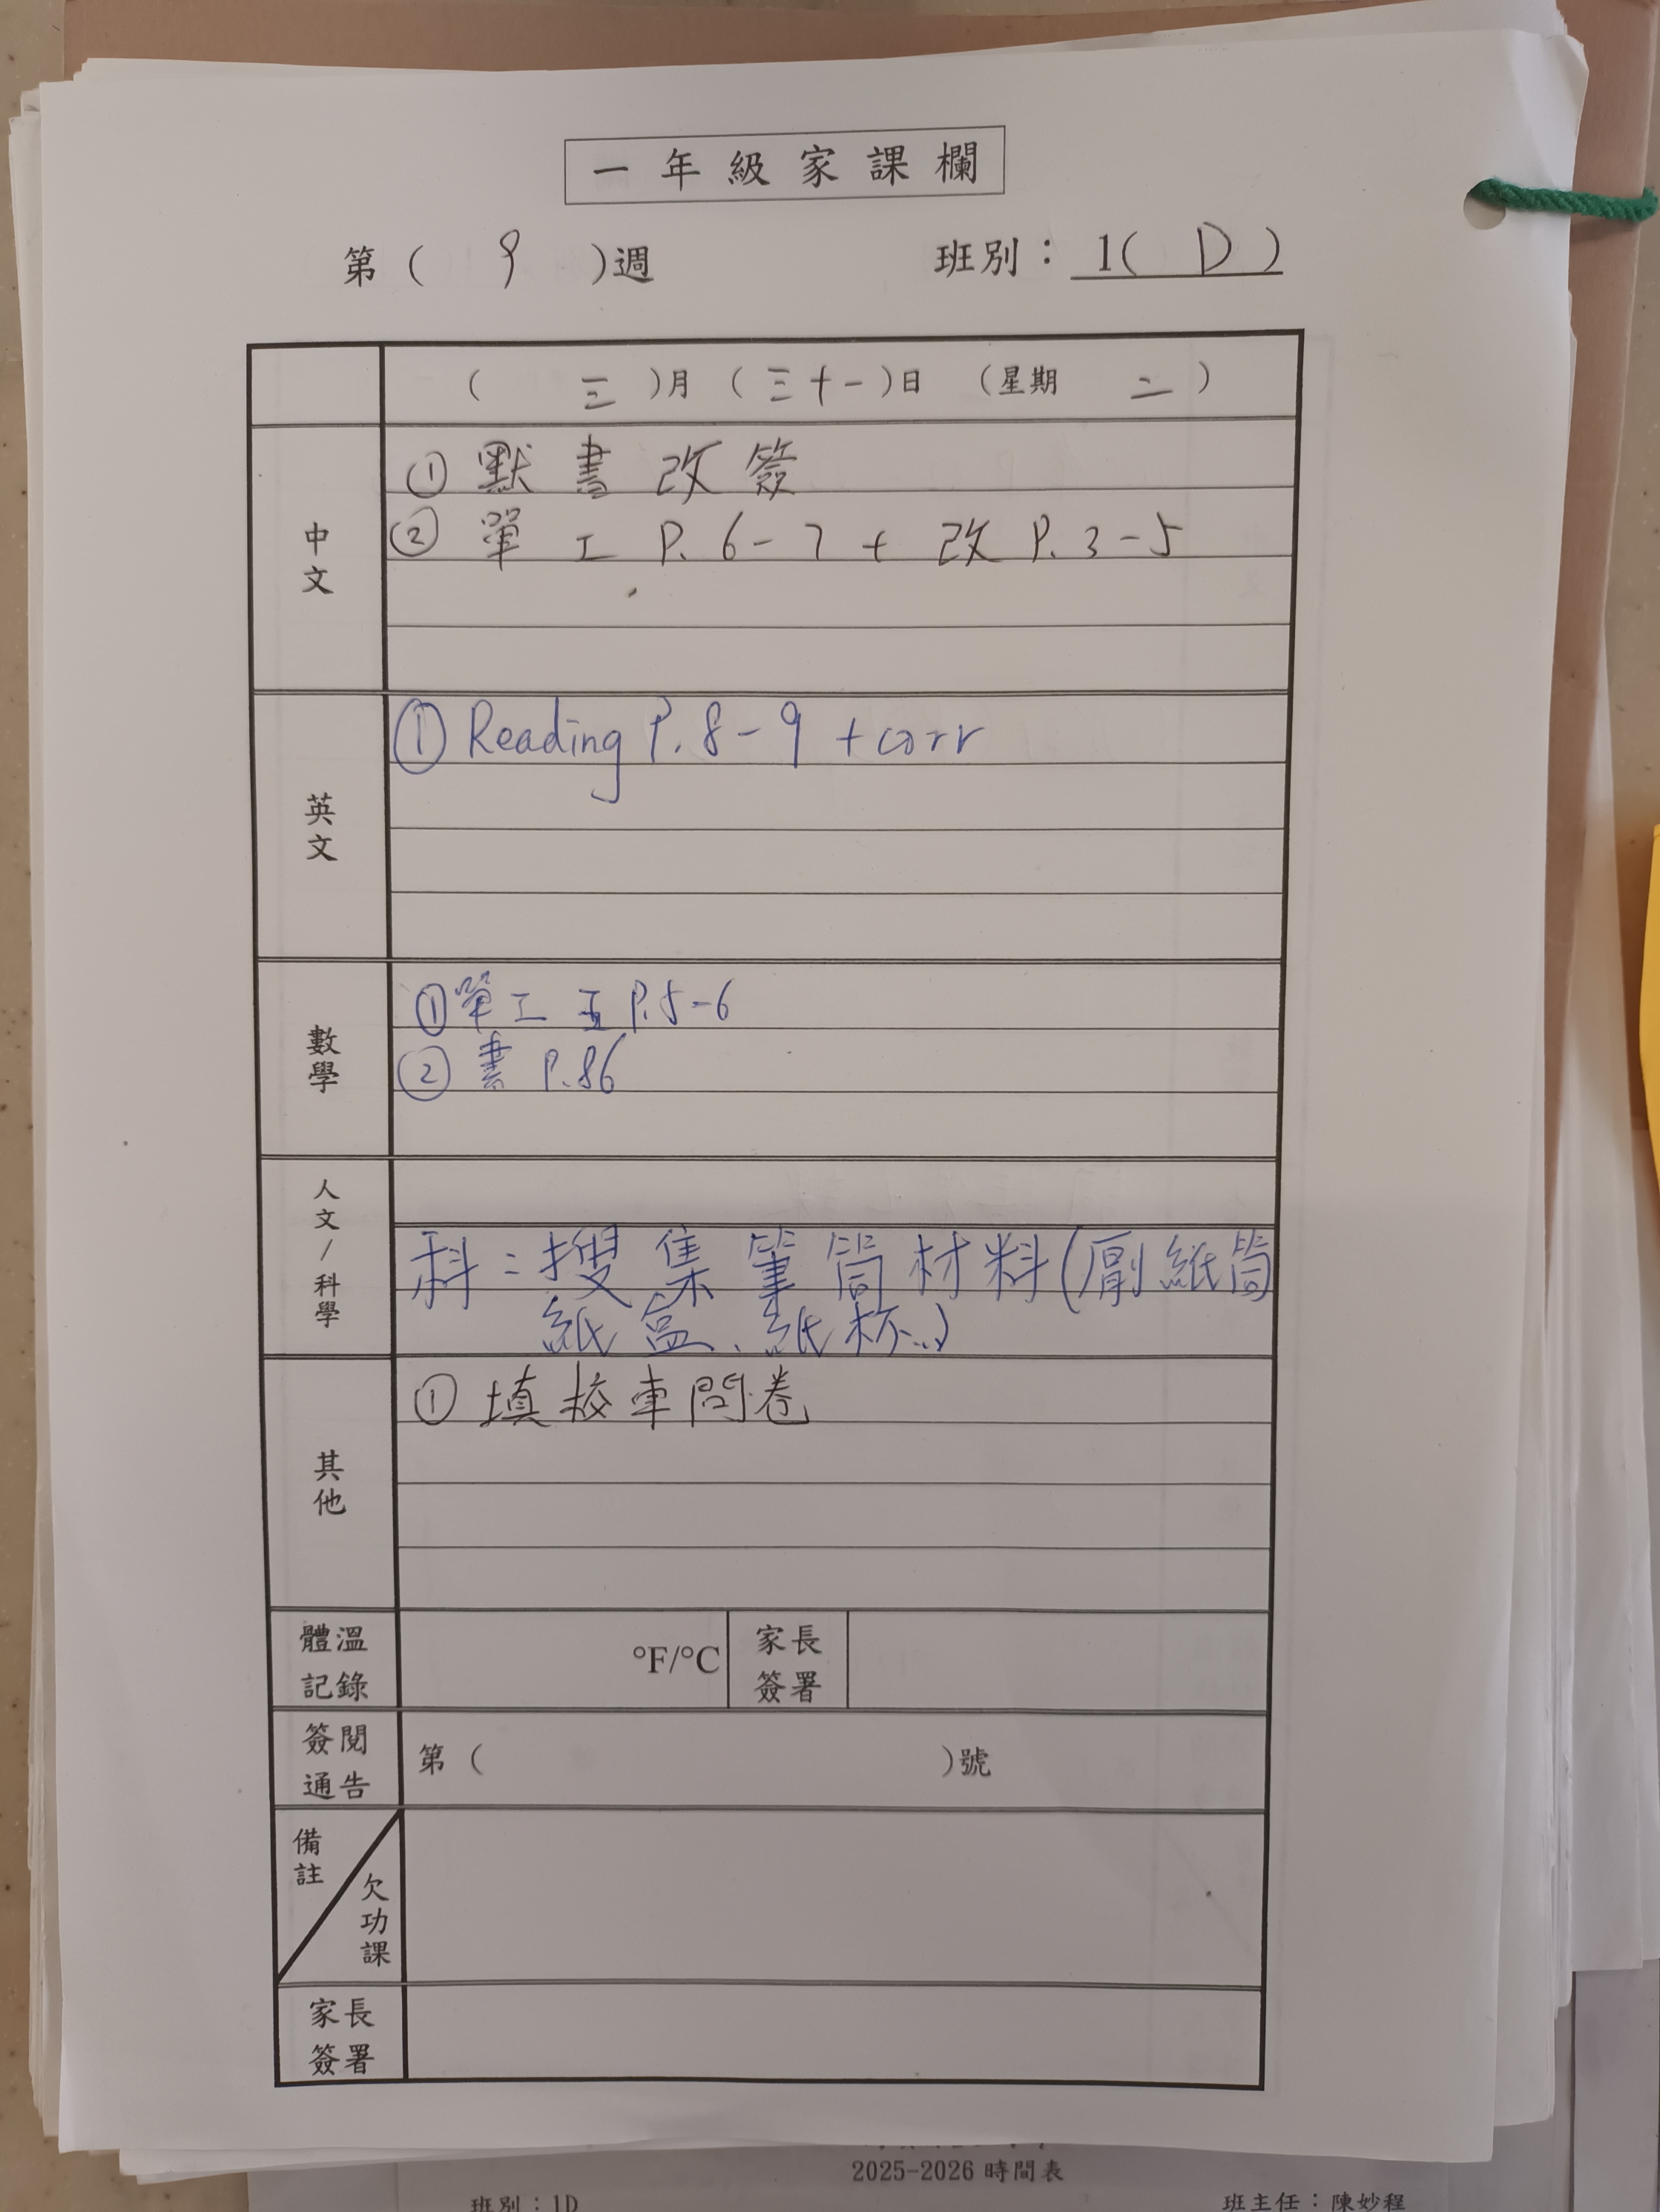 一年級家課欄
第（ 9 ）週 班別：1( D )
（ 三 ）月（三十一）日（星期 二 ）
中文
① 默書改簽
② 單工 P. 6-7 + 改 P. 3-5
英文
① Reading P. 8-9 + corr
數學
① 單工 五 P.5-6
② 書 P.86
人文/科學
科：搜集筆筒材料(廁紙筒
紙盒、紙杯..)
其他
① 填校車問卷
體溫記錄 °F/°C 家長簽署
簽閱通告 第（ ）號
備註 欠功課
家長簽署
2025-2026 時間表
班別：1D 班主任：陳妙程